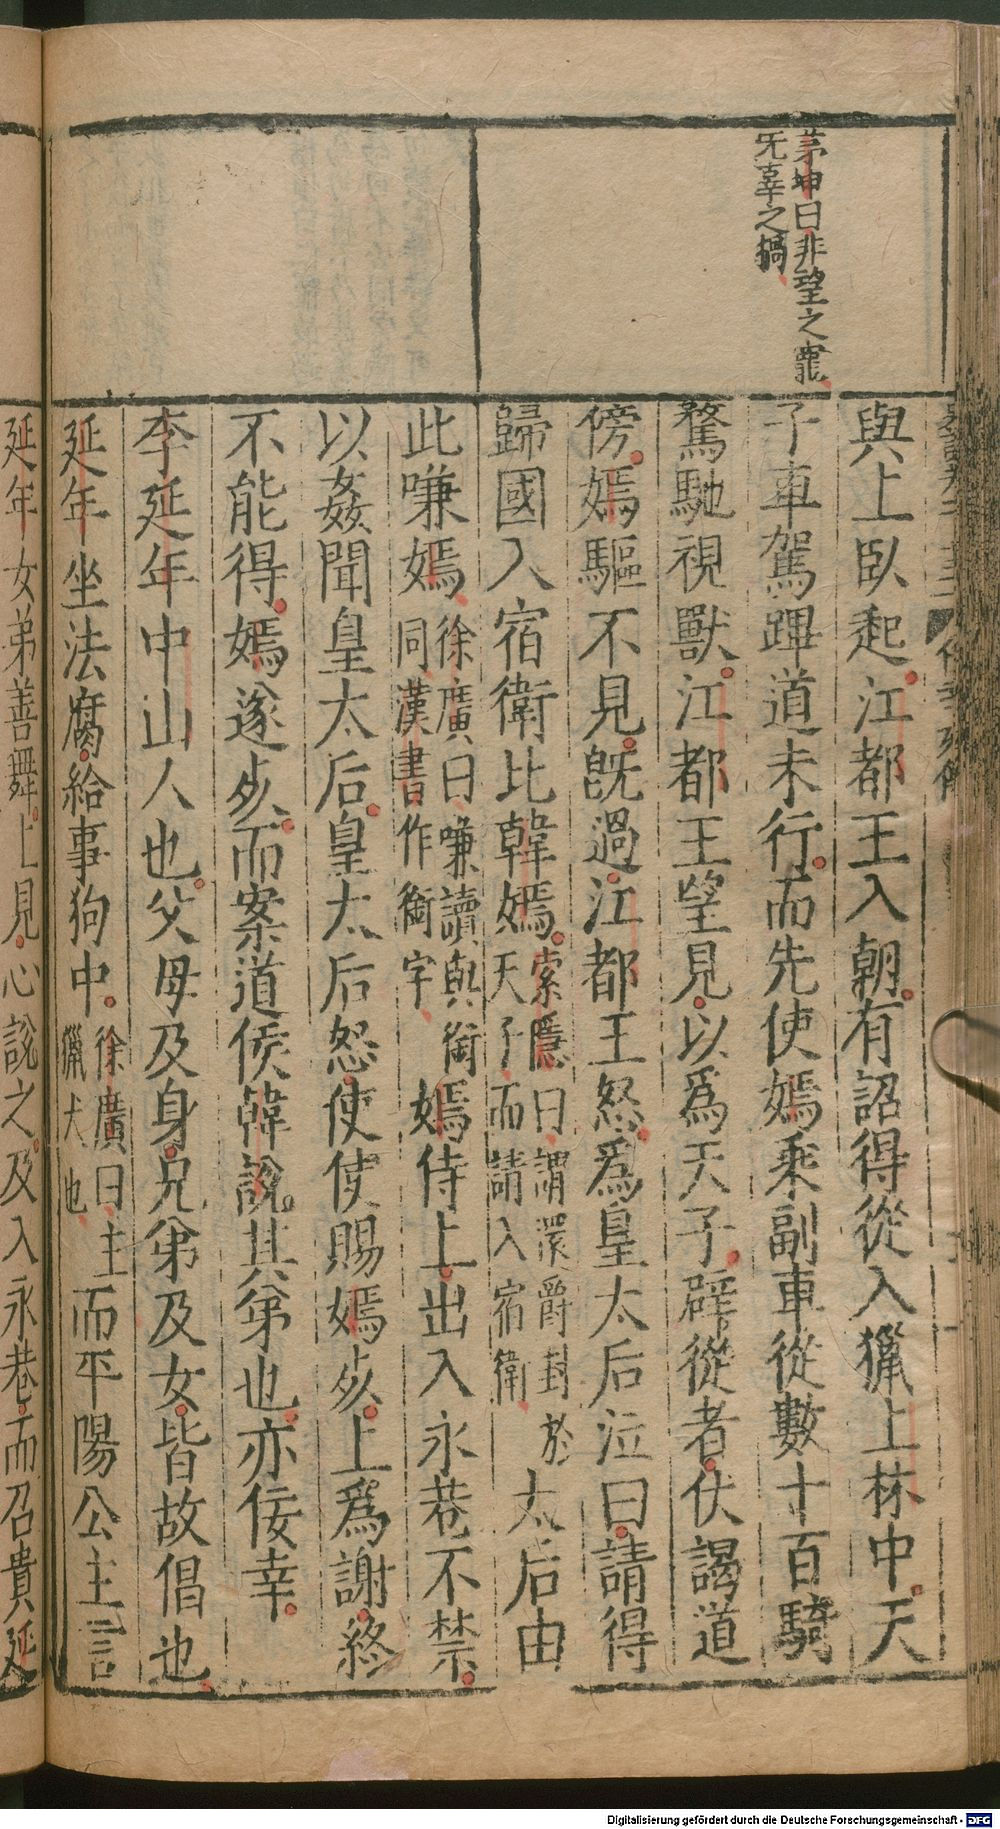 茅坤曰非望之寵
旡辜之禍
與上臥起江都王入朝有詔得從入獵上林中天
子車駕蹕道未行而先使嫣乘副車從數十百騎
騖馳視獸江都王望見以爲天子辟從者伏謁道
傍嫣驅不見旣過江都王怒爲皇太后泣曰請得
歸國入宿衛比韓嫣
索隱曰謂還爵封於
天子而請入宿衛
太后由
此嗛嫣
徐廣曰嗛讀與銜
同漢書作銜字
嫣侍上出入永巷不禁
以姦聞皇太后皇太后怒使使賜嫣死上爲謝終
不能得嫣遂死而案道侯韓說其弟也亦佞幸
李延年中山人也父母及身兄弟及女皆故倡也
延年坐法腐給事狗中
徐廣曰主
獵犬也
而平陽公主言
延年女弟善舞上見心說之及入永巷而召貴延
Digitalisierung gefördert durch die Deutsche Forschungsgemeinschaft - DFG